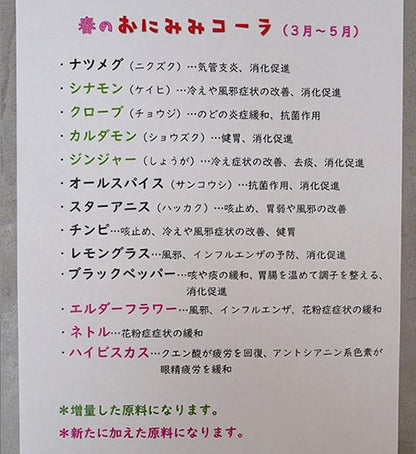 春のおにみみコーラ（３月～５月）
・ナツメグ（ニクズク）…気管支炎、消化促進
・シナモン（ケイヒ）…冷えや風邪症状の改善、消化促進
・クローブ（チョウジ）…のどの炎症緩和、抗菌作用
・カルダモン（ショウズク）…健胃、消化促進
・ジンジャー（しょうが）…冷え症状の改善、去痰、消化促進
・オールスパイス（サンコウシ）…抗菌作用、消化促進
・スターアニス（ハッカク）…咳止め、胃弱や風邪の改善
・チンピ…咳止め、冷えや風邪症状の改善、健胃
・レモングラス…風邪、インフルエンザの予防、消化促進
・ブラックペッパー…咳や痰の緩和、胃腸を温めて調子を整える、
消化促進
・エルダーフラワー…風邪、インフルエンザ、花粉症症状の緩和
・ネトル…花粉症症状の緩和
・ハイビスカス…クエン酸が疲労を回復、アントシアニン系色素が
眼精疲労を緩和
＊増量した原料になります。
＊新たに加えた原料になります。